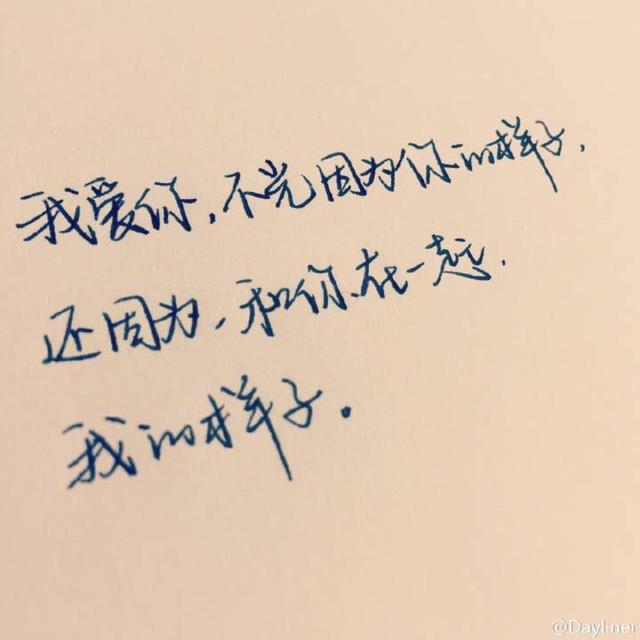 我爱你，不光因为你的样子，
还因为，和你在一起，
我的样子。
@Dayliner